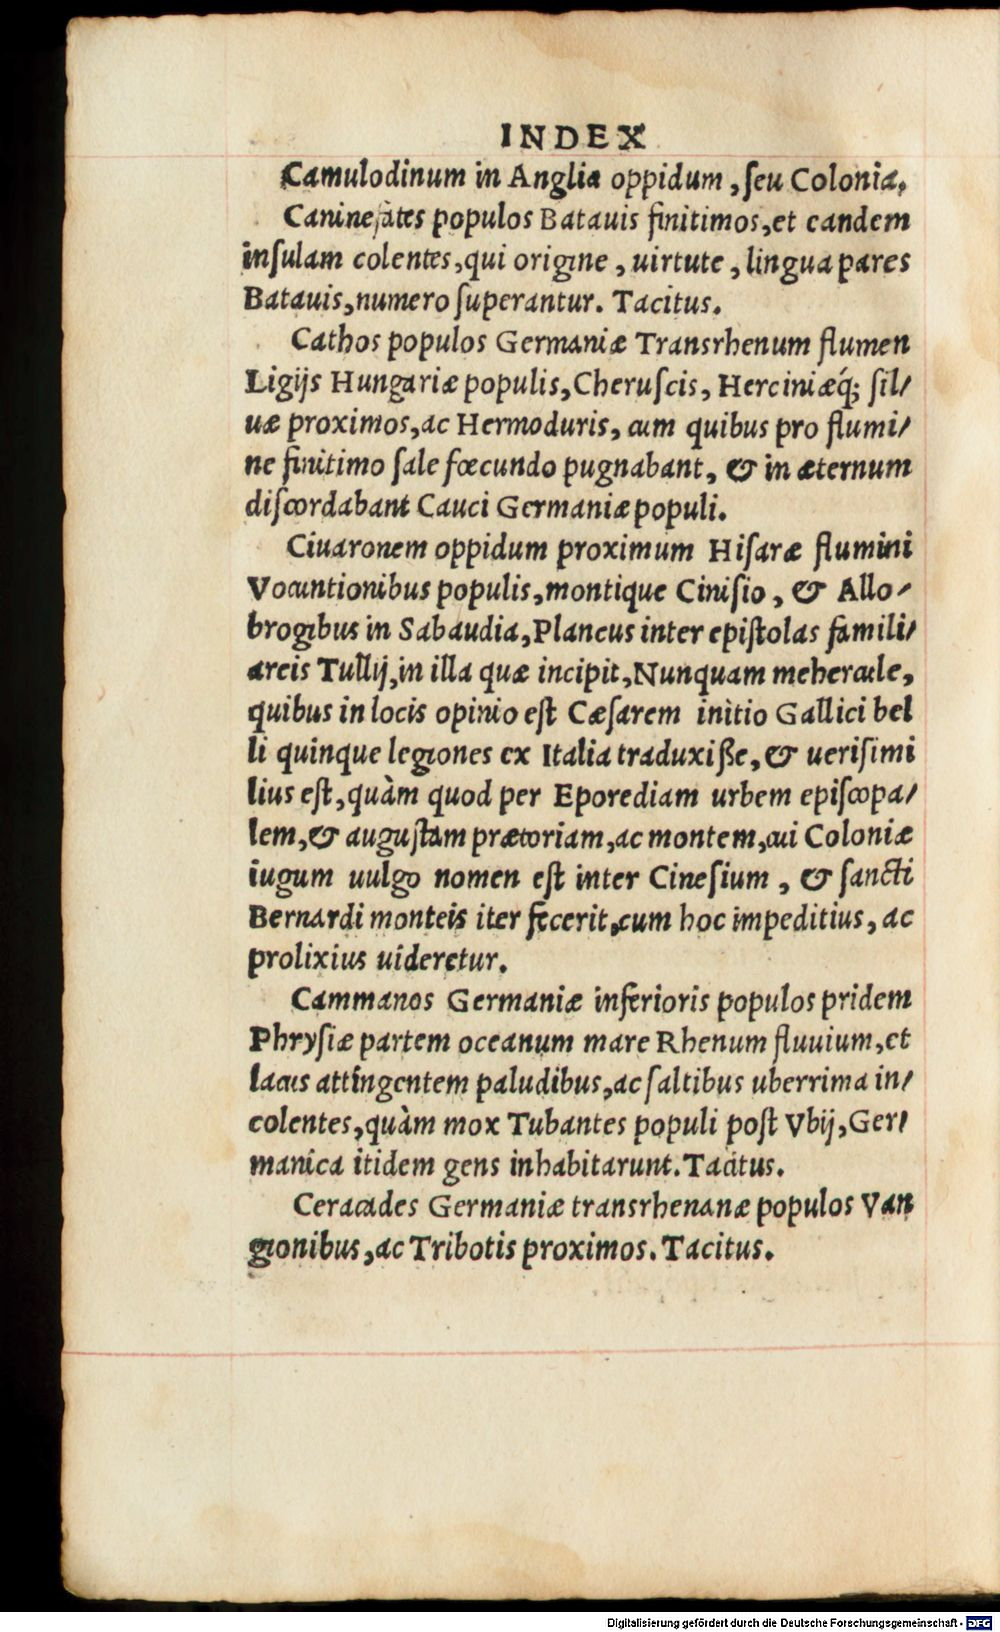 INDEX
Camulodinum in Anglia oppidum, ſeu Colonia.
Caninefates populos Batauis finitimos, et eandem
inſulam colentes, qui origine, uirtute, lingua pares
Batauis, numero ſuperantur. Tacitus.
Cathos populos Germaniæ Transrhenum flumen
Ligijs Hungariæ populis, Cheruſcis, Herciniæq́; ſil/
uæ proximos, ac Hermoduris, cum quibus pro flumi/
ne finitimo ſale fœcundo pugnabant, & in æternum
diſcordabant Cauci Germaniæ populi.
Ciuaronem oppidum proximum Hiſaræ flumini
Vocuntionibus populis, montique Ciniſio, & Allo/
brogibus in Sabaudia, Plancus inter epiſtolas famili/
areis Tullij, in illa quæ incipit, Nunquam mehercule,
quibus in locis opinio eſt Cæſarem initio Gallici bel
li quinque legiones ex Italia traduxiße, & ueriſimi
lius eſt, quàm quod per Eporediam urbem epiſcopa/
lem, & auguſtam prætoriam, ac montem, cui Coloniæ
iugum uulgo nomen eſt inter Cineſium, & ſancti
Bernardi monteis iter fecerit, cum hoc impeditius, ac
prolixius uideretur.
Cammanos Germaniæ inferioris populos pridem
Phryſiæ partem oceanum mare Rhenum fluuium, et
lacus attingentem paludibus, ac ſaltibus uberrima in/
colentes, quàm mox Tubantes populi poſt Vbij, Ger/
manica itidem gens inhabitarunt. Tacitus.
Ceracades Germaniæ transrhenanæ populos Van
gionibus, ac Tribotis proximos. Tacitus.
Digitalisierung gefördert durch die Deutsche Forschungsgemeinschaft - DFG